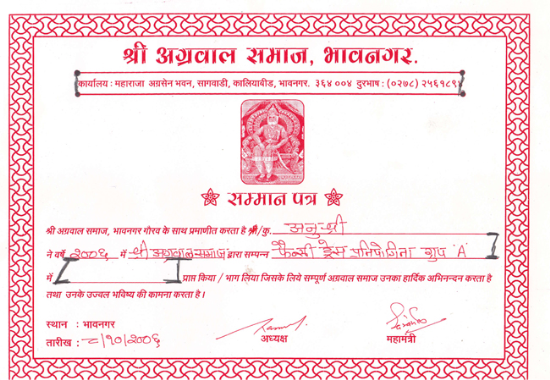 श्री अग्रवाल समाज, भावनगर.
कार्यालय : महाराजा अग्रसेन भवन, सागवाडी, कालियाबीड, भावनगर. ३६४ ००४ दुरभाष : (०२७८) २५६१८९
सम्मान पत्र
श्री अग्रवाल समाज, भावनगर गौरव के साथ प्रमाणीत करता है श्री/कु. अनुश्री
ने वर्ष २००६ में श्री अग्रवाल समाज द्वारा सम्पन्न फैन्सी ड्रेस प्रतियोगिता ग्रुप 'A'
में प्राप्त किया / भाग लिया जिसके लिये सम्पूर्ण अग्रवाल समाज उनका हार्दिक अभिनन्दन करता है
तथा उनके उज्वल भविष्य की कामना करता है।
स्थान : भावनगर
तारीख : ८/१०/२००६ अध्यक्ष महामंत्री